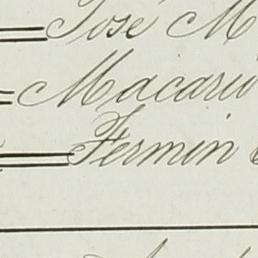 José M
Macario
Fermin